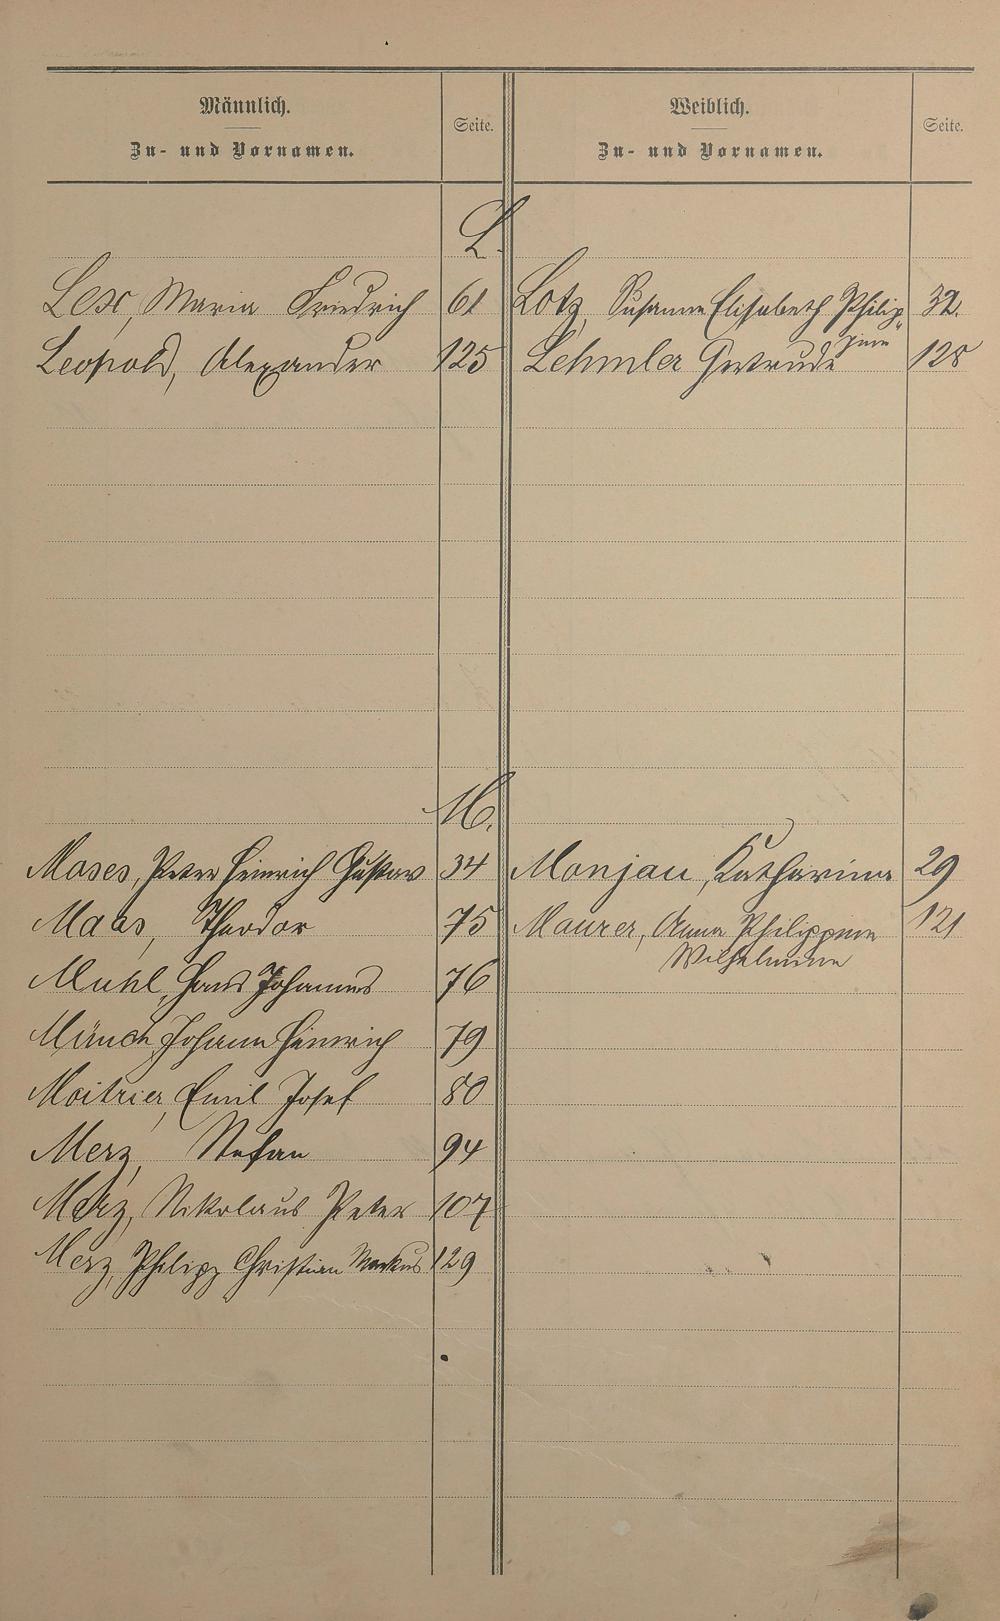 Männlich.
Zu- und Vornamen.
Seite.
Weiblich.
Zu- und Vornamen.
Seite.
L.
Lex, Maria Friedrich 61
Lotz, Susanne Elisabeth Philip„ 32.
pine
Leopold, Alexander 125
Lehmler Gertrude 128
M.
Moses, Peter Heinrich Gustav 34
Monjau, Katharina 29
Maas, Theodor 75
Maurer, Anna Philippine 121
Wilhelmine
Muhl, Hans Johannes 76
Münch, Johann Heinrich 79
Moitrier, Emil Josef 80
Merz, Stefan 94
Merz, Nikolaus Peter 107
Merz, Philipp Christian Markus 129